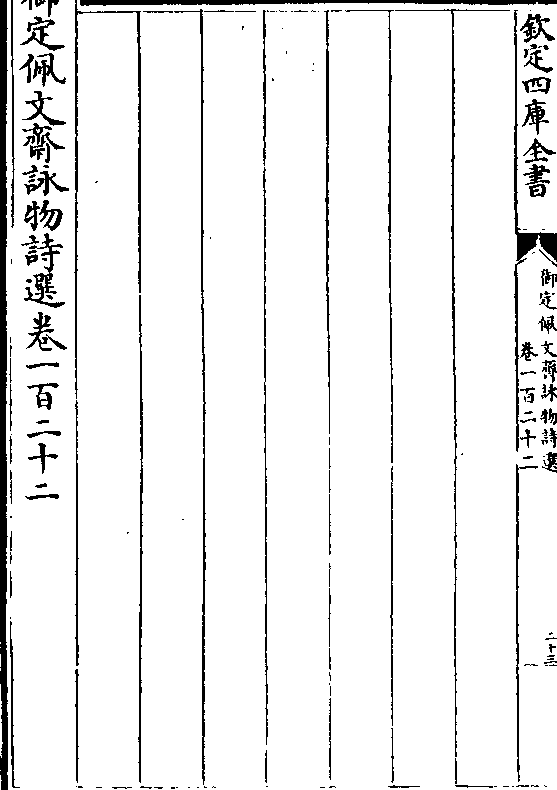 欽定四庫全書
御定佩文齋詠物詩選
卷一百二十二
二十三
御定佩文齋詠物詩選卷一百二十二